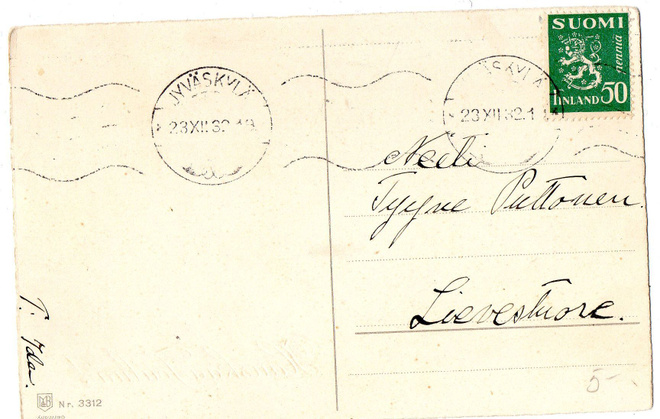 SUOMI
50 penniä
FINLAND 50
JYVÄSKYLÄ
23 XII 32
JYVÄSKYLÄ
23 XII 32
Neiti
Tyyne Puttonen.
Lievestuore.
T: Ida.
Nr. 3312
5-